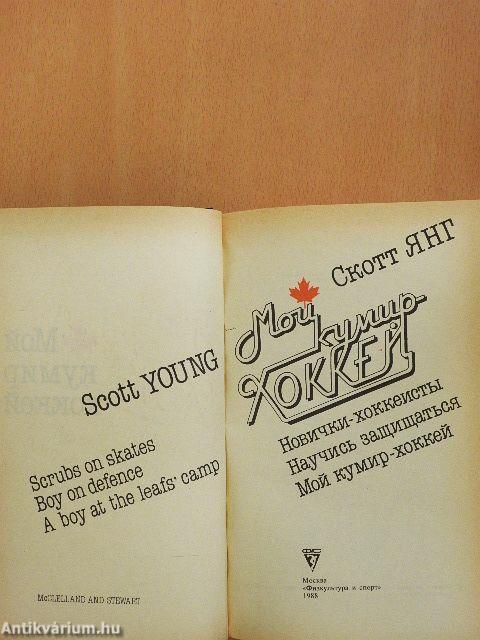 Scott YOUNG
Scrubs on skates
Boy on defence
A boy at the leafs' camp
McCLELLAND AND STEWART
Скотт ЯНГ
Мой
кумир-
ХОККЕЙ
Новички-хоккеисты
Научись защищаться
Мой кумир-хоккей
Москва
«Физкультура и спорт»
1988
Antikvárium.hu